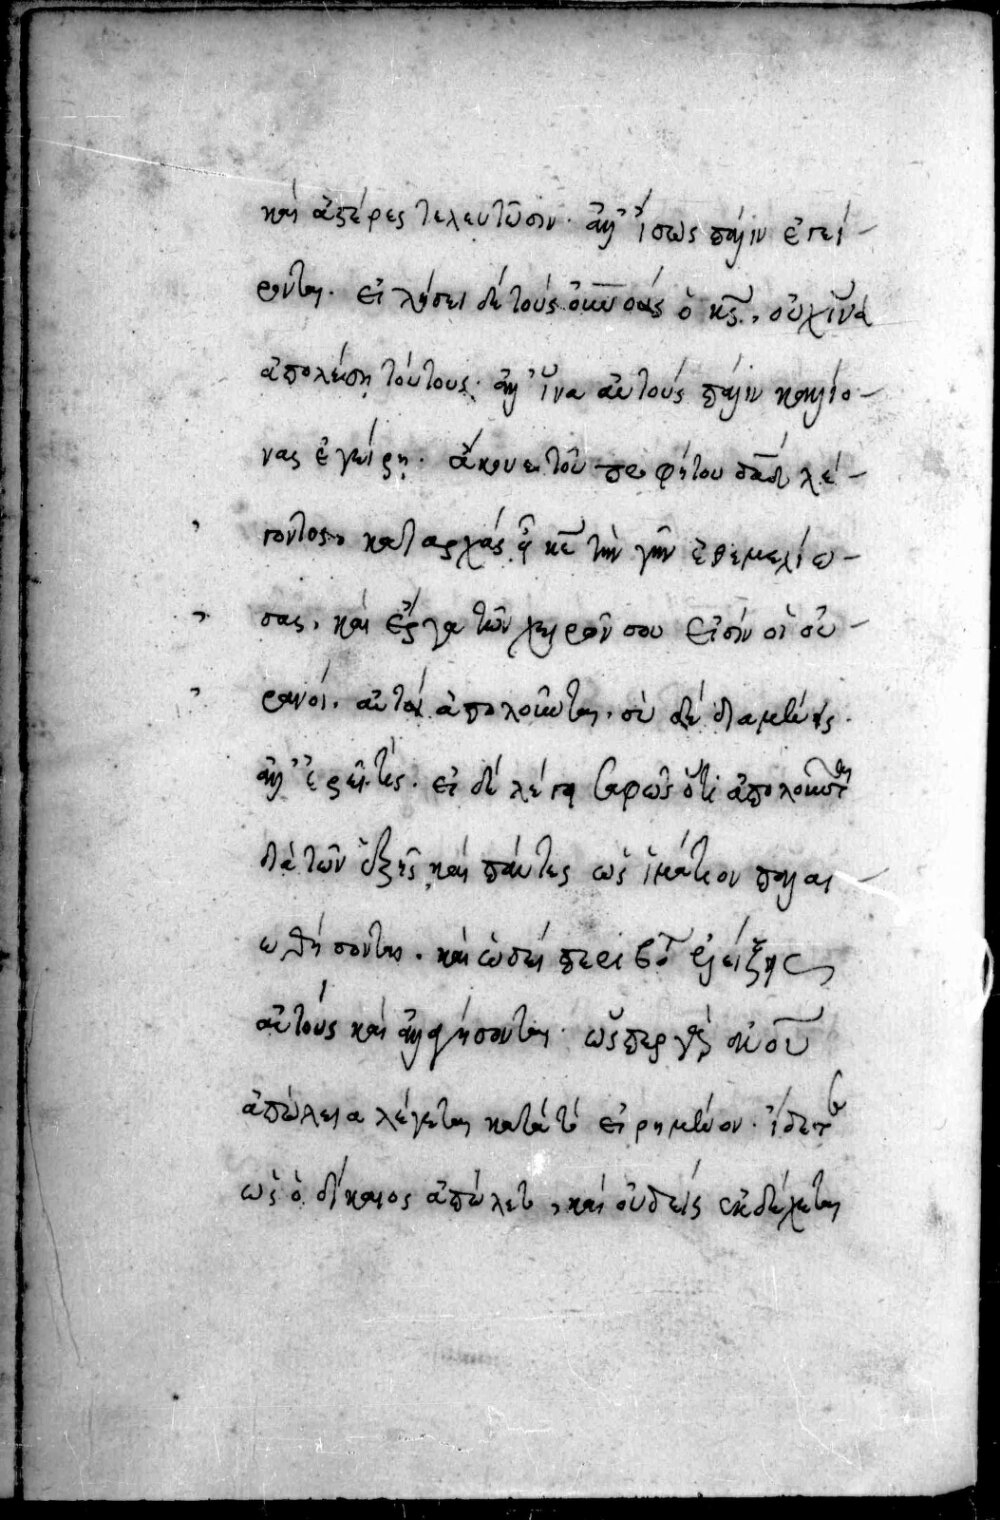 καὶ ἀστέρες τελευτῶσιν· ἀλλ' ἴσως πάλιν ἐγεί-
ρονται. εἰ λύσει δὲ τοὺς οὐνοὺς ὁ κς, οὐχ ἵνα
ἀπολέσῃ τούτους· ἀλλ' ἵνα αὐτοὺς πάλιν κρείττο-
νας ἐγείρῃ. ἄκουε τοῦ προφήτου δαδ λέ-
γοντος, κατ' ἀρχάς σὺ κε τὴν γῆν ἐθεμελίω-
σας, καὶ ἔργα τῶν χειρῶν σου εἰσὶν οἱ οὐ-
ρανοί. αὐτοὶ ἀπολοῦνται, σὺ δὲ διαμένεις.
ἀλλ' ἐρεῖ τις· εἰ δὲ λέγει σαφῶς ὅτι ἀπολοῦνται
διὰ τῶν ἑξῆς, καὶ πάντες ὡς ἱμάτιον παλαι
ωθήσονται. καὶ ὡσεὶ περιβό ἑλίξεις
αὐτοὺς καὶ ἀλλαγήσονται. ὥσπερ γὰρ
ἀπώλεια λέγεται κατὰ τὸ εἰρημένον· ἴδετε
ὡς ὁ δίκαιος ἀπώλετο, καὶ οὐδεὶς ἐκδέχεται